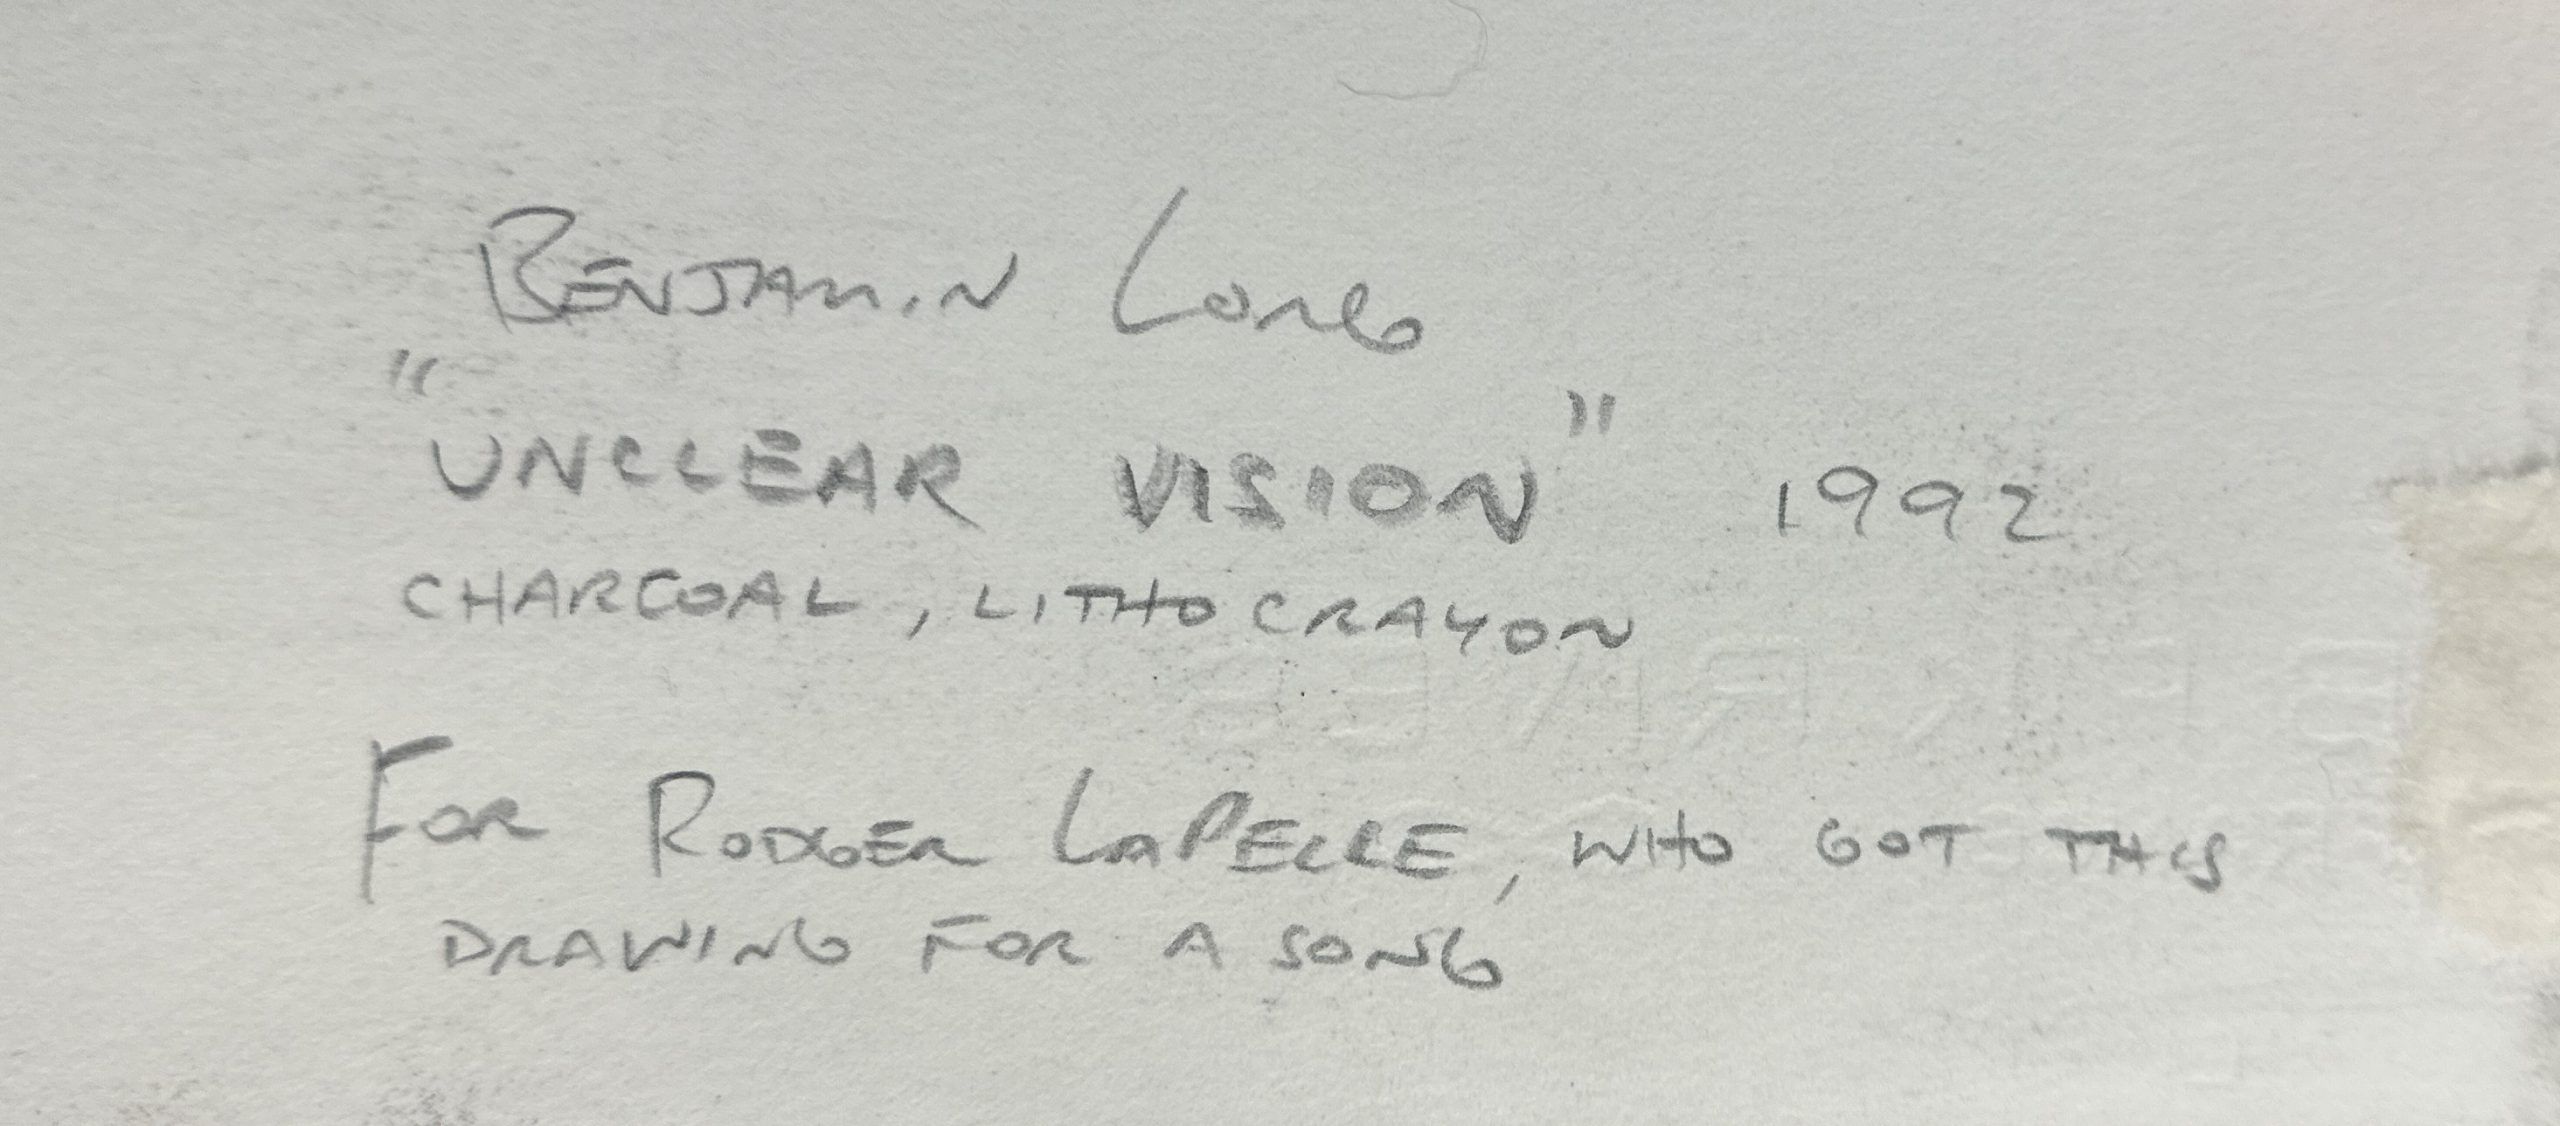 BENJAMIN LONG
"UNCLEAR VISION" 1992
CHARCOAL, LITHO CRAYON
FOR RODGER LAPELLE, WHO GOT THIS
DRAWING FOR A SONG